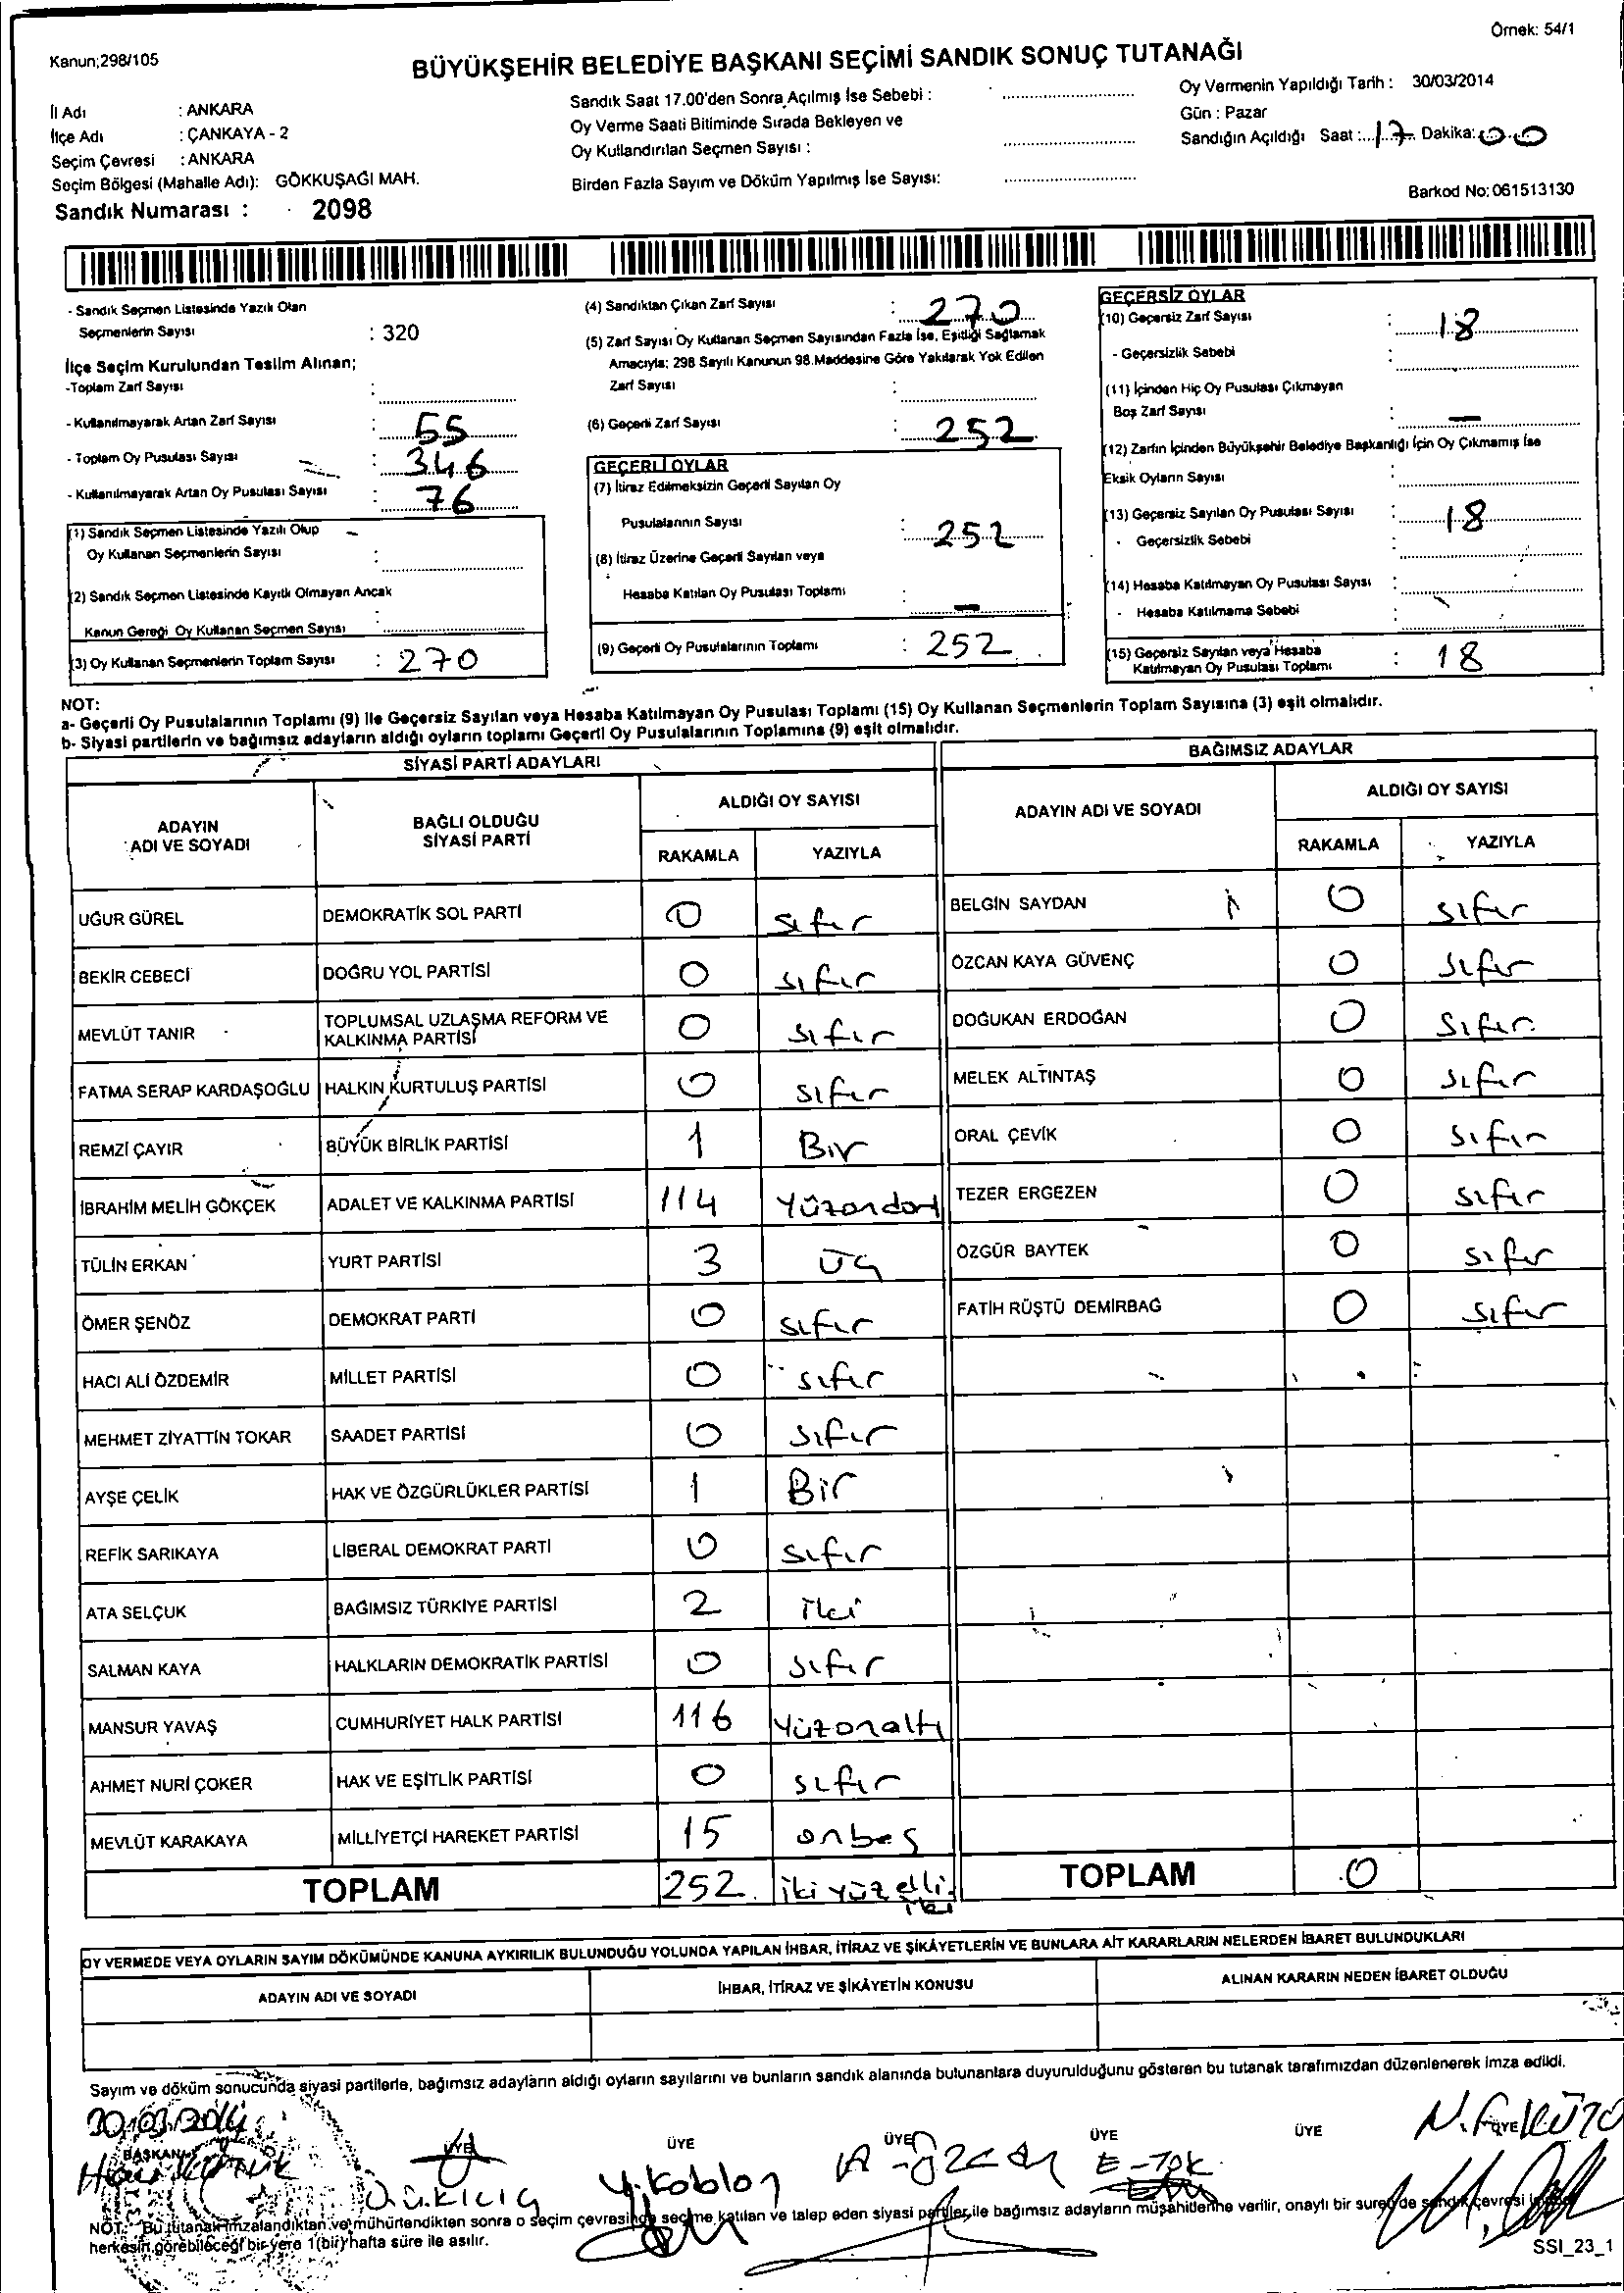 Örnek: 54/1
Kanun;298/105
BÜYÜKŞEHİR BELEDİYE BAŞKANI SEÇİMİ SANDIK SONUÇ TUTANAĞI
İl Adı : ANKARA
İlçe Adı : ÇANKAYA - 2
Seçim Çevresi : ANKARA
Seçim Bölgesi (Mahalle Adı): GÖKKUŞAĞI MAH.
Sandık Numarası : 2098
Sandık Saat 17.00'den Sonra Açılmış İse Sebebi :
Oy Verme Saati Bitiminde Sırada Bekleyen ve
Oy Kullandırılan Seçmen Sayısı :
Birden Fazla Sayım ve Döküm Yapılmış İse Sayısı:
Oy Vermenin Yapıldığı Tarih : 30/03/2014
Gün : Pazar
Sandığın Açıldığı Saat : 17 Dakika: 00
Barkod No: 061513130
- Sandık Seçmen Listesinde Yazılı Olan
Seçmenlerin Sayısı : 320
İlçe Seçim Kurulundan Teslim Alınan;
-Toplam Zarf Sayısı :
- Kullanılmayarak Artan Zarf Sayısı : 55
- Toplam Oy Pusulası Sayısı : 346
- Kullanılmayarak Artan Oy Pusulası Sayısı : 76
(1) Sandık Seçmen Listesinde Yazılı Olup
Oy Kullanan Seçmenlerin Sayısı :
(2) Sandık Seçmen Listesinde Kayıtlı Olmayan Ancak
Kanun Gereği Oy Kullanan Seçmen Sayısı :
(3) Oy Kullanan Seçmenlerin Toplam Sayısı : 270
(4) Sandıktan Çıkan Zarf Sayısı : 270
(5) Zarf Sayısı Oy Kullanan Seçmen Sayısından Fazla İse, Eşitliği Sağlamak
Amacıyla; 298 Sayılı Kanunun 98.Maddesine Göre Yakılarak Yok Edilen
Zarf Sayısı :
(6) Geçerli Zarf Sayısı : 252
GEÇERLİ OYLAR
(7) İtiraz Edilmeksizin Geçerli Sayılan Oy
Pusulalarının Sayısı : 252
(8) İtiraz Üzerine Geçerli Sayılan veya
Hesaba Katılan Oy Pusulası Toplamı : -
(9) Geçerli Oy Pusulalarının Toplamı : 252
GEÇERSİZ OYLAR
(10) Geçersiz Zarf Sayısı : 18
- Geçersizlik Sebebi :
(11) İçinden Hiç Oy Pusulası Çıkmayan
Boş Zarf Sayısı : -
(12) Zarfın İçinden Büyükşehir Belediye Başkanlığı İçin Oy Çıkmamış İse
Eksik Oyların Sayısı :
(13) Geçersiz Sayılan Oy Pusulası Sayısı : 18
- Geçersizlik Sebebi :
(14) Hesaba Katılmayan Oy Pusulası Sayısı :
- Hesaba Katılmama Sebebi :
(15) Geçersiz Sayılan veya Hesaba
Katılmayan Oy Pusulası Toplamı : 18
NOT:
a- Geçerli Oy Pusulalarının Toplamı (9) ile Geçersiz Sayılan veya Hesaba Katılmayan Oy Pusulası Toplamı (15) Oy Kullanan Seçmenlerin Toplam Sayısına (3) eşit olmalıdır.
b- Siyasi partilerin ve bağımsız adayların aldığı oyların toplamı Geçerli Oy Pusulalarının Toplamına (9) eşit olmalıdır.
SİYASİ PARTİ ADAYLARI
ADAYIN ADI VE SOYADI BAĞLI OLDUĞU SİYASİ PARTİ ALDIĞI OY SAYISI RAKAMLA YAZIYLA
UĞUR GÜREL DEMOKRATİK SOL PARTİ 0 sıfır
BEKİR CEBECİ DOĞRU YOL PARTİSİ 0 sıfır
MEVLÜT TANIR TOPLUMSAL UZLAŞMA REFORM VE KALKINMA PARTİSİ 0 sıfır
FATMA SERAP KARDAŞOĞLU HALKIN KURTULUŞ PARTİSİ 0 sıfır
REMZİ ÇAYIR BÜYÜK BİRLİK PARTİSİ 1 Bir
İBRAHİM MELİH GÖKÇEK ADALET VE KALKINMA PARTİSİ 114 Yüzondört
TÜLİN ERKAN YURT PARTİSİ 3 Üç
ÖMER ŞENÖZ DEMOKRAT PARTİ 0 sıfır
HACI ALİ ÖZDEMİR MİLLET PARTİSİ 0 sıfır
MEHMET ZİYATTİN TOKAR SAADET PARTİSİ 0 sıfır
AYŞE ÇELİK HAK VE ÖZGÜRLÜKLER PARTİSİ 1 Bir
REFİK SARIKAYA LİBERAL DEMOKRAT PARTİ 0 sıfır
ATA SELÇUK BAĞIMSIZ TÜRKİYE PARTİSİ 2 iki
SALMAN KAYA HALKLARIN DEMOKRATİK PARTİSİ 0 sıfır
MANSUR YAVAŞ CUMHURİYET HALK PARTİSİ 116 Yüzonaltı
AHMET NURİ ÇOKER HAK VE EŞİTLİK PARTİSİ 0 sıfır
MEVLÜT KARAKAYA MİLLİYETÇİ HAREKET PARTİSİ 15 onbeş
TOPLAM 252 iki yüz elli iki
BAĞIMSIZ ADAYLAR
ADAYIN ADI VE SOYADI ALDIĞI OY SAYISI RAKAMLA YAZIYLA
BELGİN SAYDAN 0 sıfır
ÖZCAN KAYA GÜVENÇ 0 sıfır
DOĞUKAN ERDOĞAN 0 sıfır
MELEK ALTINTAŞ 0 sıfır
ORAL ÇEVİK 0 sıfır
TEZER ERGEZEN 0 sıfır
ÖZGÜR BAYTEK 0 sıfır
FATİH RÜŞTÜ DEMİRBAĞ 0 sıfır
TOPLAM 0
OY VERMEDE VEYA OYLARIN SAYIM DÖKÜMÜNDE KANUNA AYKIRILIK BULUNDUĞU YOLUNDA YAPILAN İHBAR, İTİRAZ VE ŞİKÂYETLERİN VE BUNLARA AİT KARARLARIN NELERDEN İBARET BULUNDUKLARI
ADAYIN ADI VE SOYADI İHBAR, İTİRAZ VE ŞİKÂYETİN KONUSU ALINAN KARARIN NEDEN İBARET OLDUĞU
Sayım ve döküm sonucunda siyasi partilerle, bağımsız adayların aldığı oyların sayılarını ve bunların sandık alanında bulunanlara duyurulduğunu gösteren bu tutanak tarafımızdan düzenlenerek imza edildi.
30.03.2014
BAŞKAN ÜYE ÜYE ÜYE ÜYE ÜYE ÜYE
Ü.KILIÇ
Y.Koblan
A-ÖZCAN
E-TOK
NOT: Bu tutanak imzalandıktan ve mühürlendikten sonra o seçim çevresinde seçime katılan ve talep eden siyasi partiler ile bağımsız adayların müşahitlerine verilir, onaylı bir sureti de sandık çevresi
herkesin görebileceği bir yere 1(bir) hafta süre ile asılır.
SSI_23_1